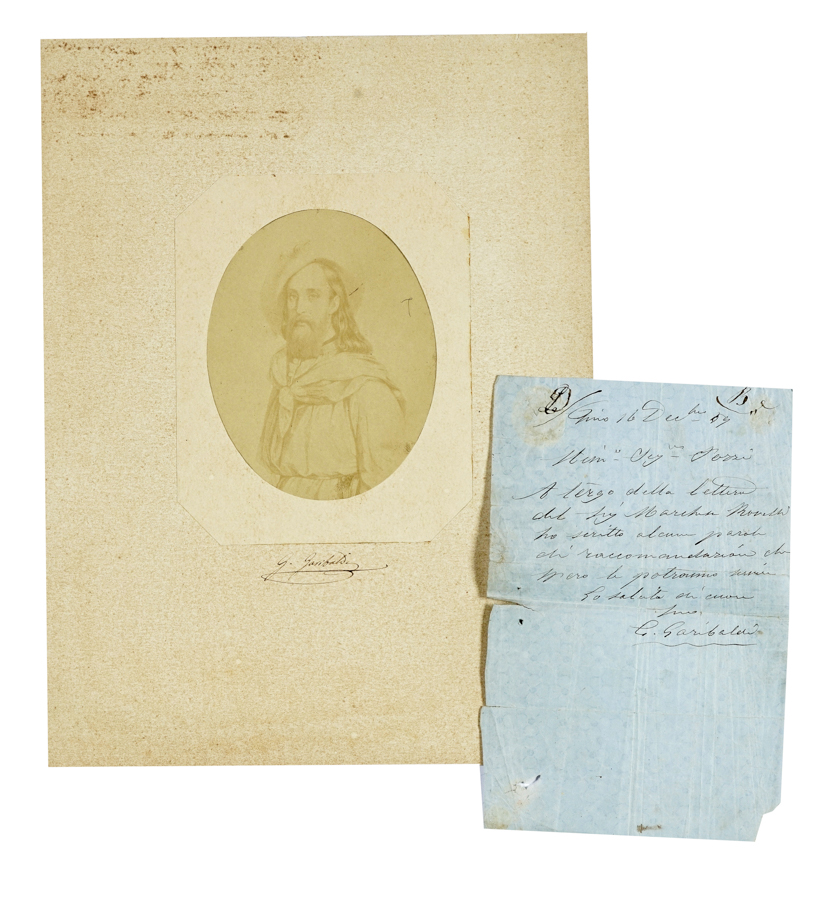 G. Garibaldi
16 Decbre 59
Stimo Sigre Pozzi
A tergo della lettera
del Sig Marchse
ho scritto alcune parole
di raccomandazione che
spero le potranno servire
Lo saluto di cuore
Suo
G. Garibaldi